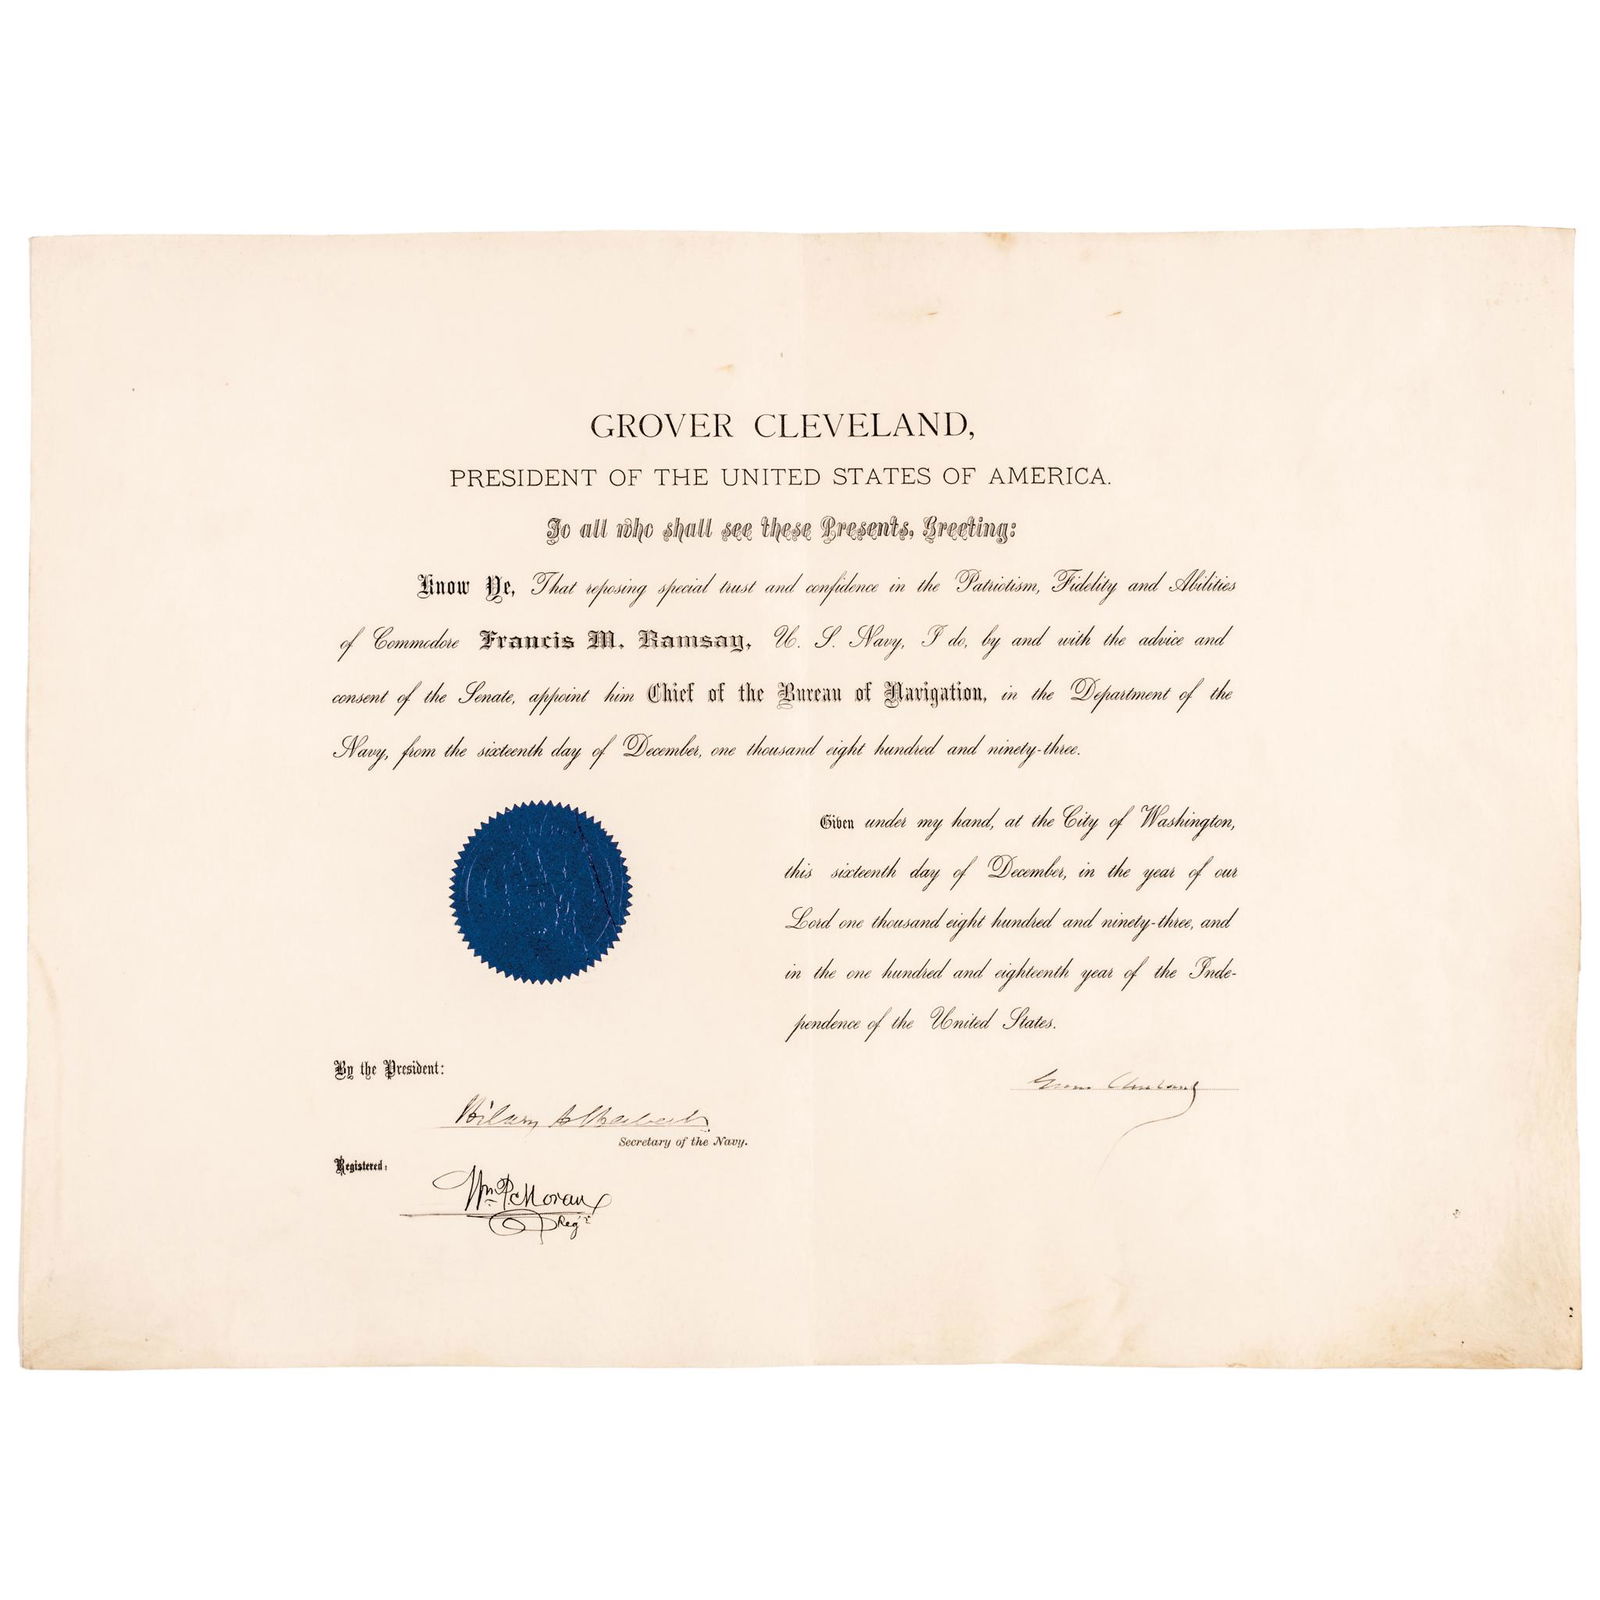 GROVER CLEVELAND,
PRESIDENT OF THE UNITED STATES OF AMERICA.
To all who shall see these Presents, Greeting:
Know Ye, That reposing special trust and confidence in the Patriotism, Fidelity and Abilities
of Commodore Francis M. Ramsay, U. S. Navy, I do, by and with the advice and
consent of the Senate, appoint him Chief of the Bureau of Navigation, in the Department of the
Navy, from the sixteenth day of December, one thousand eight hundred and ninety-three.
Given under my hand, at the City of Washington,
this sixteenth day of December, in the year of our
Lord one thousand eight hundred and ninety-three, and
in the one hundred and eighteenth year of the Inde-
pendence of the United States.
Grover Cleveland
By the President:
Hilary A Herbert
Secretary of the Navy.
Registered:
Wm. P. Moran
Regr